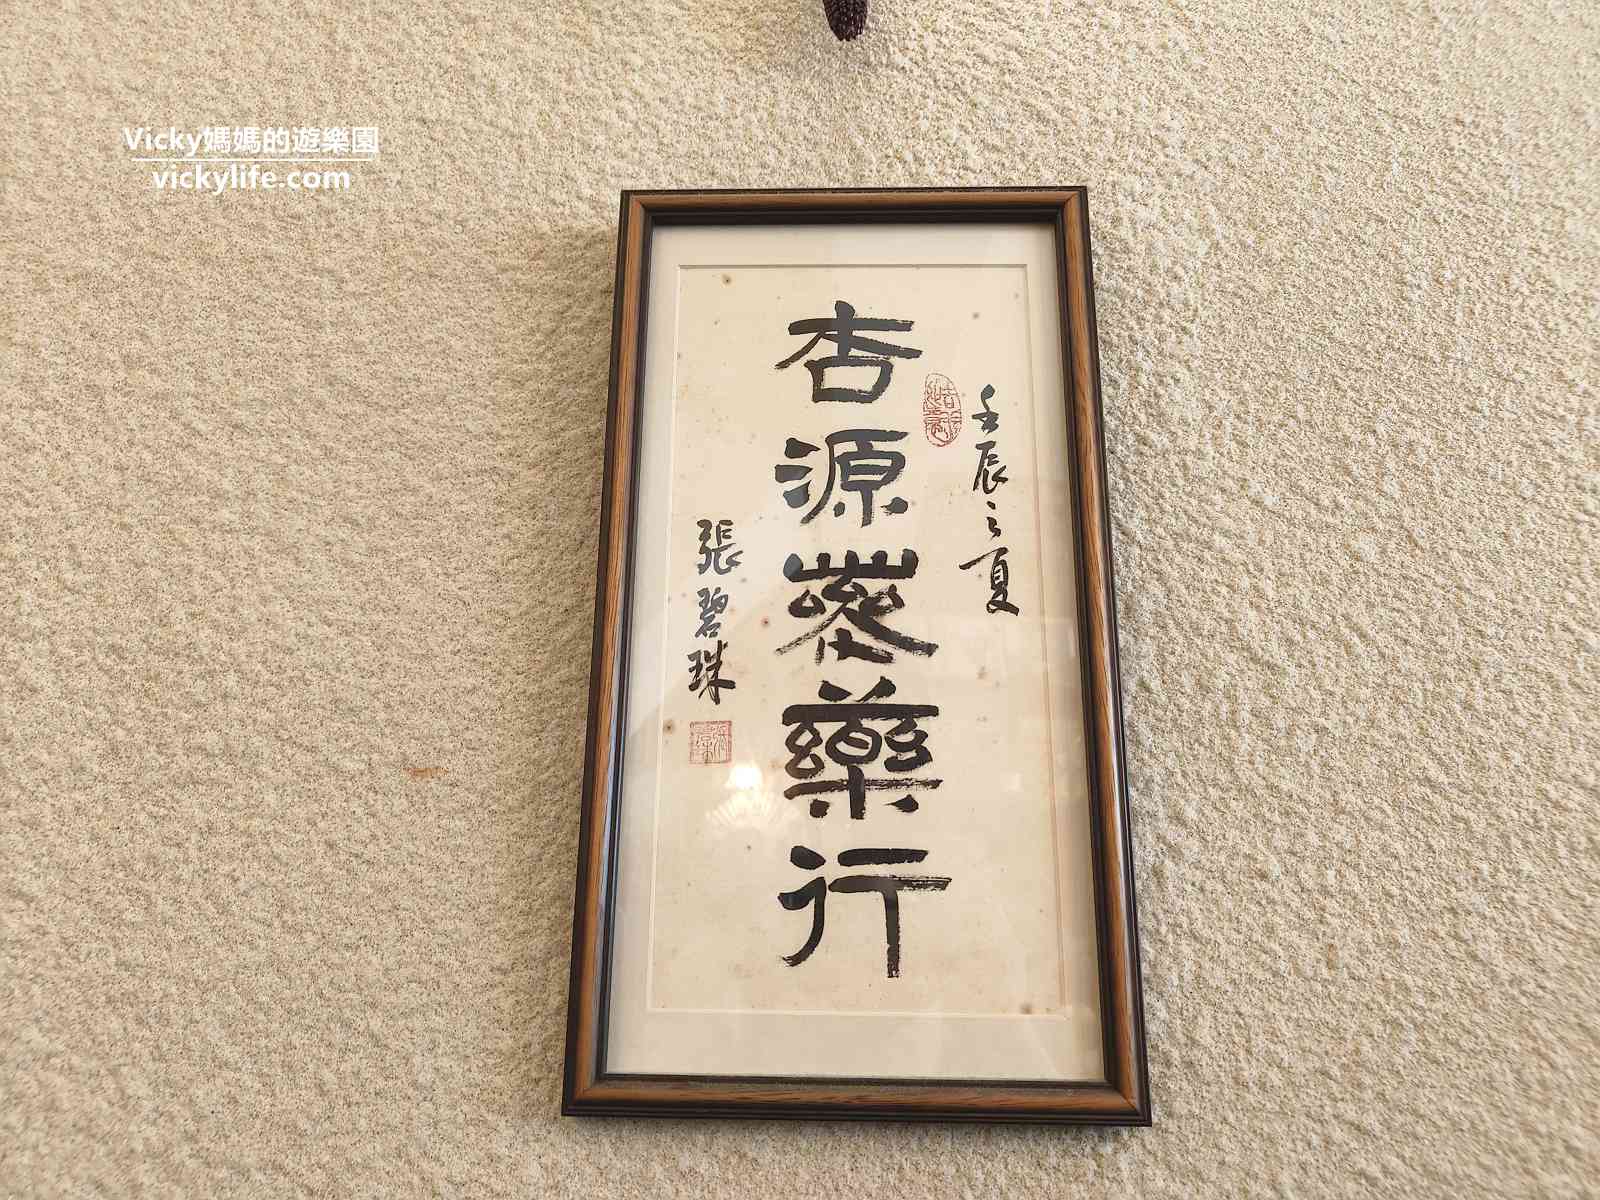 Vicky媽媽的遊樂園
vickylife.com
壬辰之夏
杏源蔘藥行
張碧珠